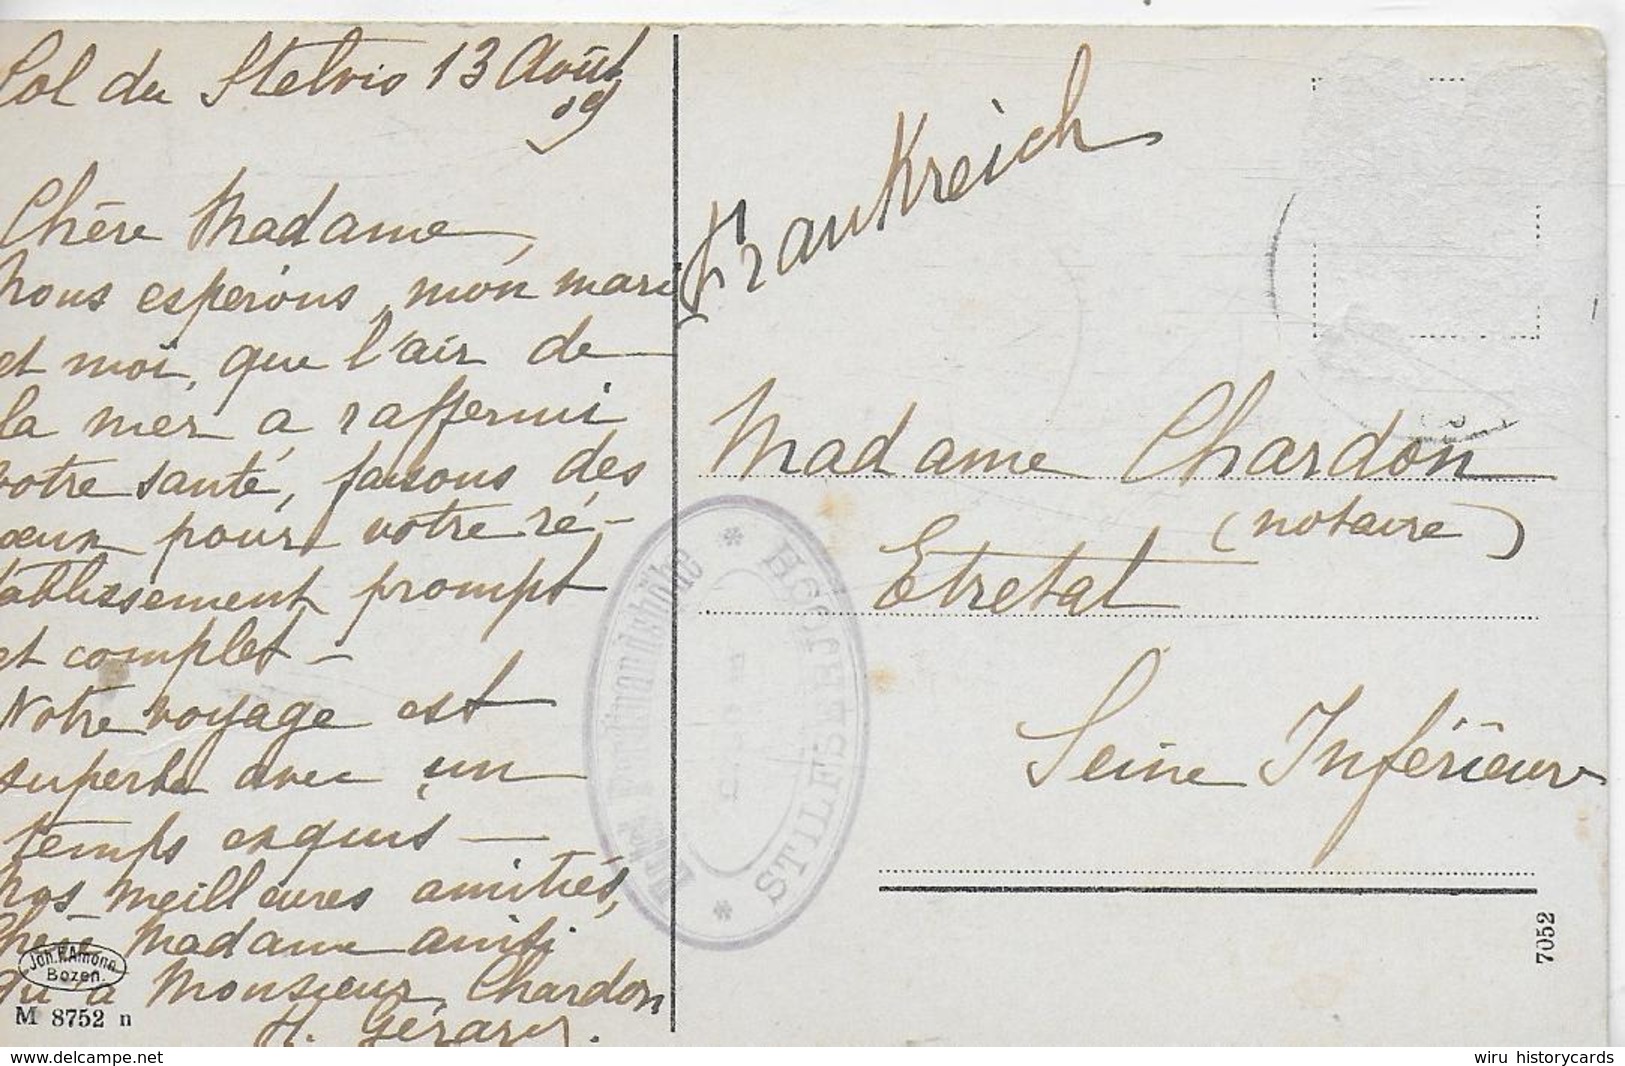 Col du Stelvio 13 Août
09
Chère Madame,
Nous espérons, mon mari
et moi, que l'air de
la mer a raffermi
votre santé, faisons des
vœux pour votre ré-
tablissement prompt
et complet –
Notre voyage est
superbe avec un
temps exquis –
Nos meilleures amitiés,
Chère Madame ainsi
qu'à Monsieur Chardon
H. Gérard.
Joh. F. Amonn
Bozen.
M 8752 n
Frankreich
Madame Chardon
(notaire)
Etretat
Seine Inférieure
Hotel Ferdinandshöhe
STILFSERJOCH
7052
delcampe.net
wiru historycards